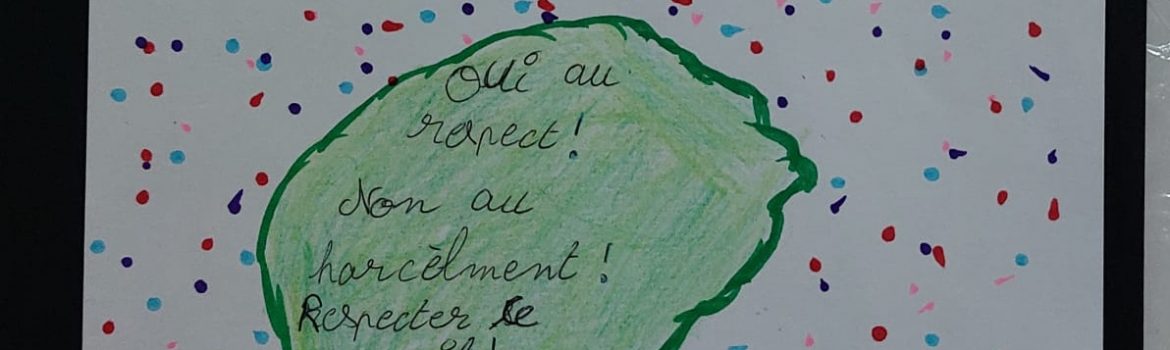 Oui au
respect !
Non au
harcèlment !
Respecter le